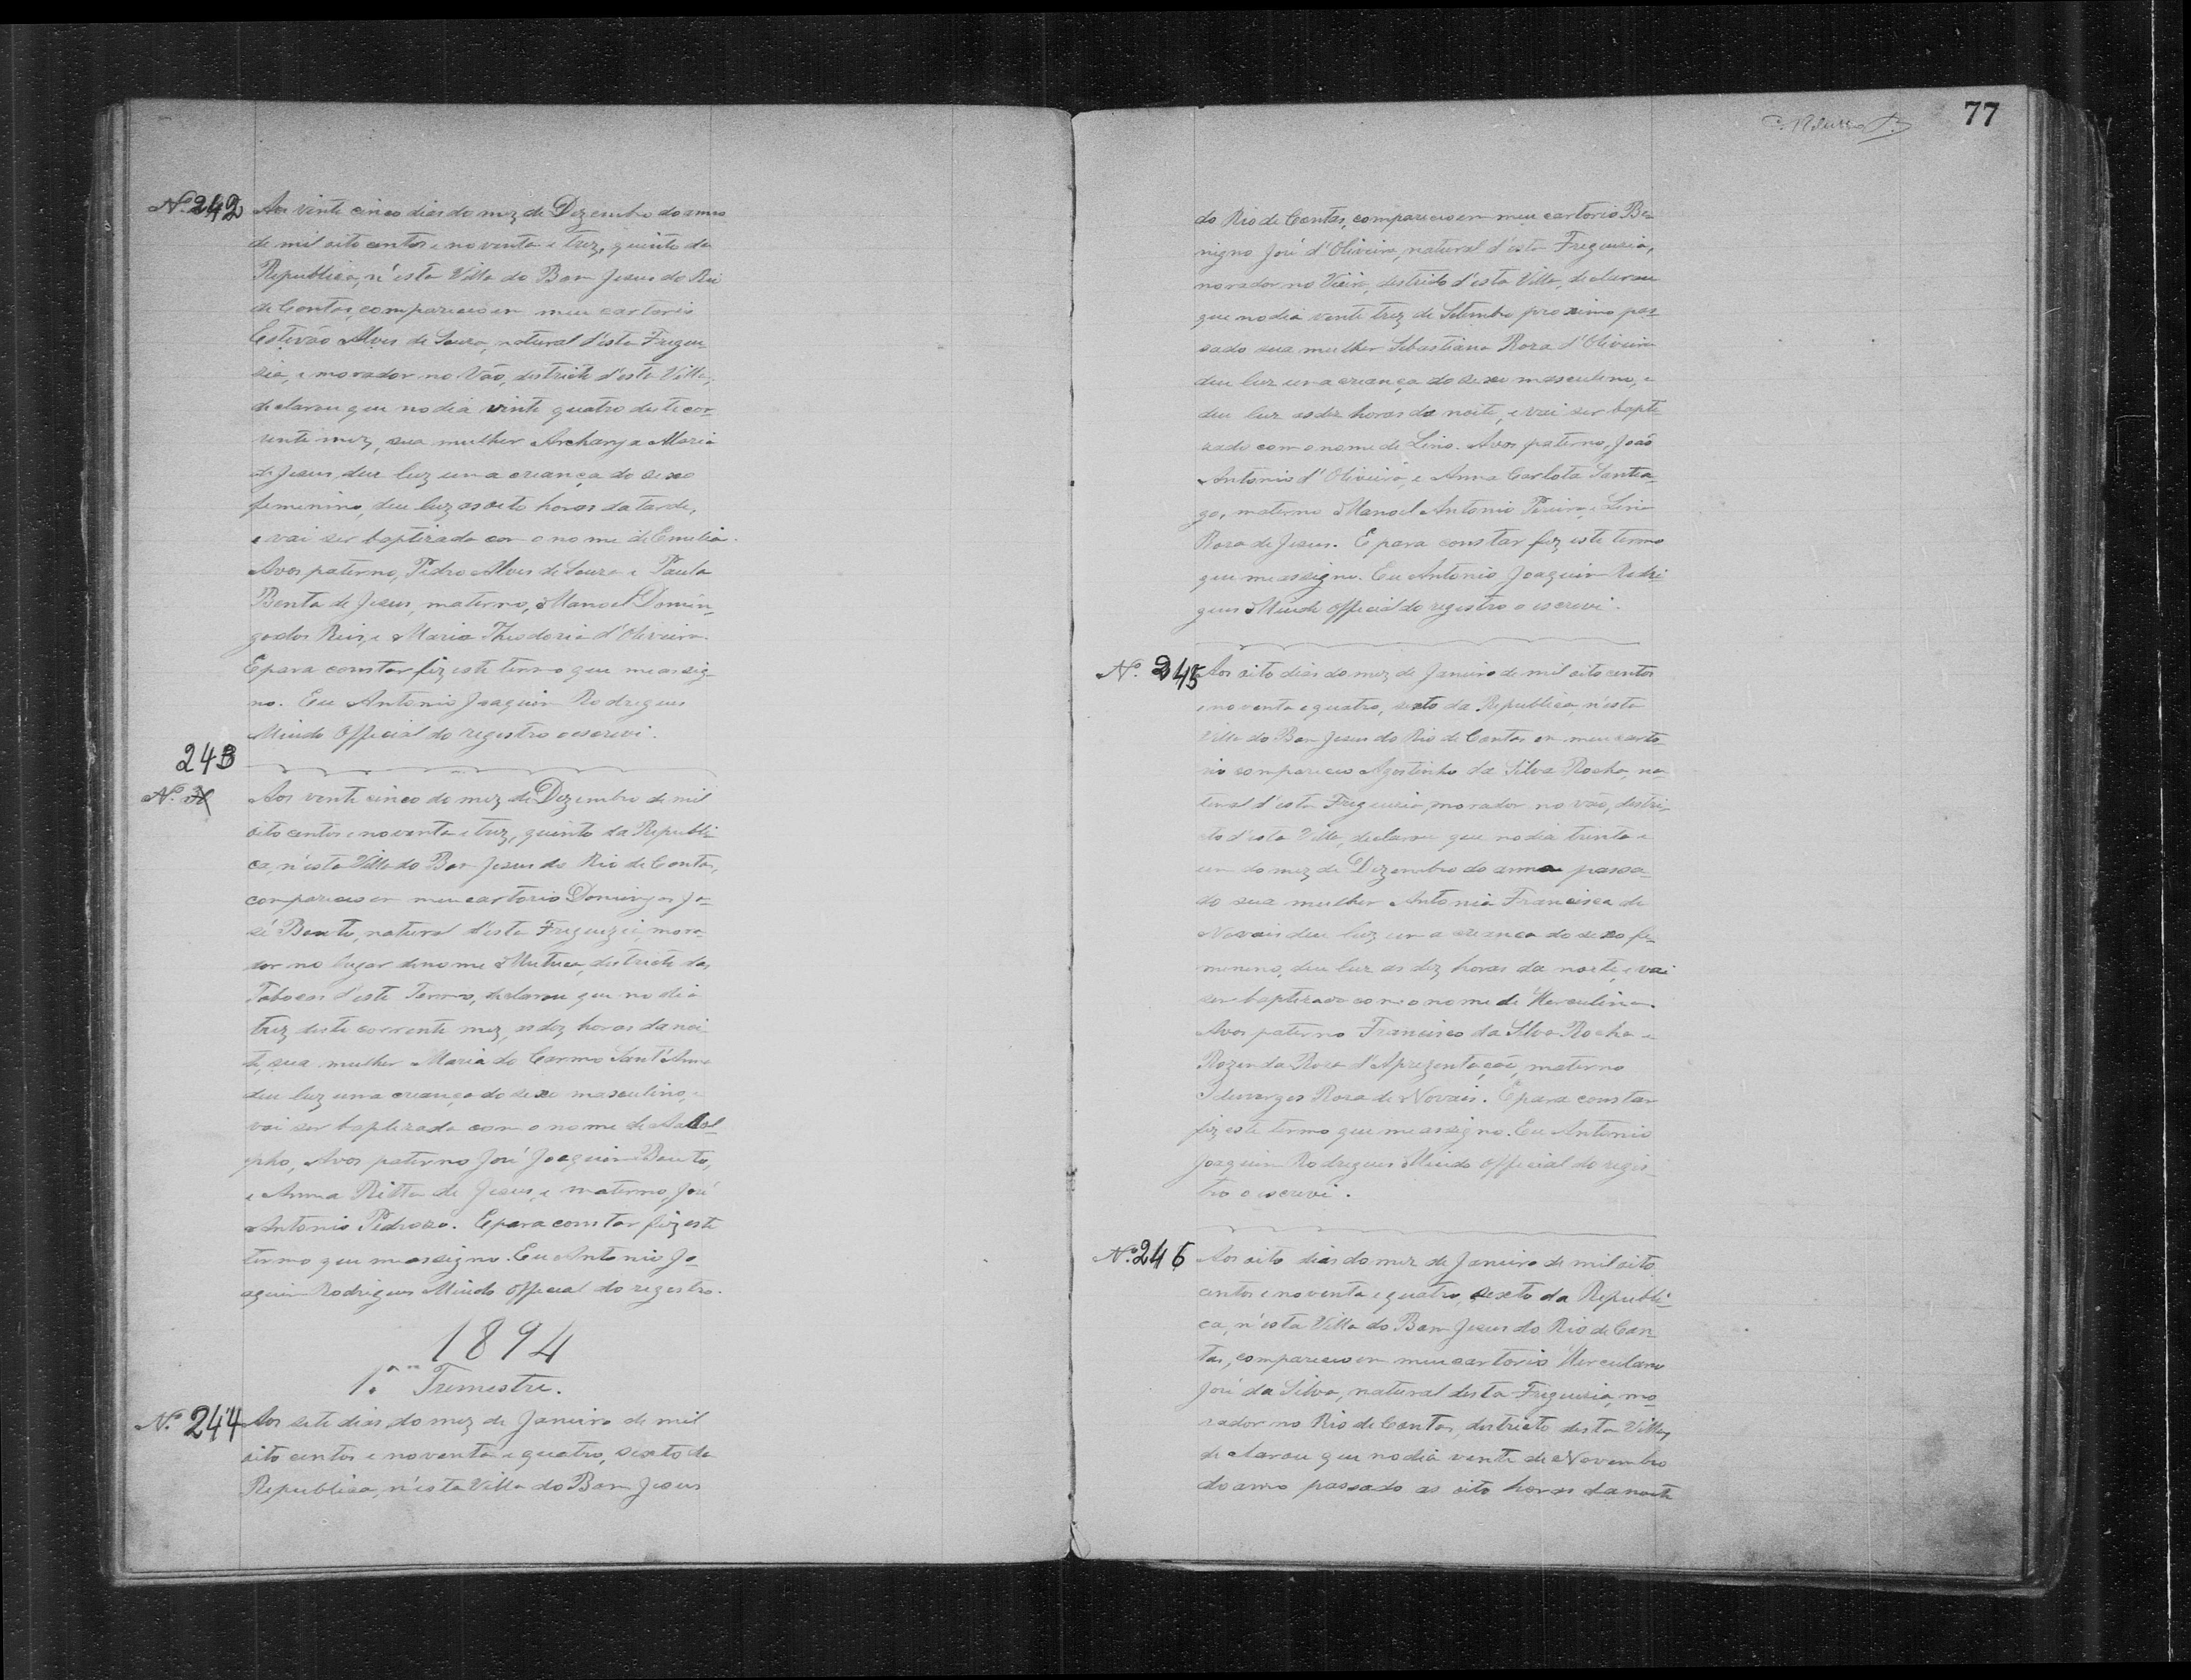 Nº 242 Aos vinte cinco dias do mez de Dezembro do anno
de mil oito centos e noventa e trez, quinto da
Republica, n'esta Villa do Bom Jesus do Rio
de Contas, compareceo em meu cartorio
Estevão Alves de Souza, natural d'esta Fregue-
sia, e morador no Vão, destricto d'esta Villa,
declarou que no dia vinte quatro deste cor-
rente mez, sua mulher Archanja Maria
de Jesus, deu luz uma creança do sexo
feminino, deu luz as oito horas da tarde,
e vai ser baptizada com o nome de Emilia.
Avos paterno, Pedro Alves de Souza e Paula
Benta de Jesus, materno, Manoel Domin-
gos dos Reis, e Maria Theodoria d'Oliveira.
E para constar fiz este termo que me assig-
no. Eu Antonio Joaquim Rodrigues
Miudo Official do registro o escrevi.
243
Nº Aos vente cinco do mez de Dezembro de mil
oito centos e noventa e trez, quinto da Republi-
ca, n'esta Villa do Bom Jesus do Rio de Contas,
compareceo em meu cartorio Domingos Jo-
sé Bento, natural d'esta Freguezia, mora-
dor no lugar denome Mutuca, destricto das
Tabocas d'este Termo, declarou que no dia
trez deste corrente mez, as dez horas da noi-
te, sua mulher Maria do Carmo Sant'Anna
deu luz uma creança do sexo masculino, e
vai ser baptizada com o nome de
pho, Avos paterno José Joaquim Bento,
e Anna Ritta de Jesus, e materno, José
Antonio Pedrozo. E para constar fiz este
termo que me assigno. Eu Antonio Jo-
aquim Rodrigues Miudo Official do registro.
1894
1.º Tremestre.
Nº 244 Aos sete dias do mez de Janeiro de mil
oito centos e noventa e quatro, sexto da
Republica, n'esta Villa do Bom Jesus
77
do Rio de Contas, compareceo em meu cartorio Be-
nigno José d'Oliveira, natural d'esta Freguesia,
morador no Vieira, destricto d'esta Villa, declarou
que no dia vente trez de Setembro proximo pas-
sado sua mulher Sebastiana Roza d'Oliveira
deu luz uma creança do sexo masculino, e
deu luz as dez horas da noite, e vai ser bapti-
sado com o nome de Lino. Avos paterno, João
Antonio d'Oliveira, e Anna Carlota Santia-
go, materno Manoel Antonio Pereira, e Lina
Rosa de Jesus. E para constar fez este termo
que me assigno. Eu Antonio Joaquim Rodri-
gues Miudo Official do registro o escrevi.
Nº 245 Aos oito dias do mez de Janeiro de mil oito centos
e noventa e quatro, sexto da Republica, n'esta
Villa do Bom Jesus do Rio de Contas em meu carto-
rio compareceo Agostinho da Silva Rocha, na-
tural d'esta Freguesia, morador no vão, destri-
cto d'esta Villa, declarou que no dia trinta e
um do mez de Dezembro do anno passa-
do sua mulher Antonia Francisca de
Novais deu luz uma creanca do sexo fe-
menino, deu luz as dez horas da noite, e vai
ser baptizada com o nome de Herculina.
Avos paterno Francisco da Silva Rocha e
Rozenda Rosa d'Aprezentação, materno
Rosa de Novais. E para constar
fiz este termo que me assigno. Eu Antonio
Joaquim Rodrigues Miudo Official do regis-
tro o escrevi.
Nº 246 Aos oito dias do mez de Janeiro de mil oito
centos e noventa e quatro, sexto da Republi-
ca, n'esta Villa do Bom Jesus do Rio de Con-
tas, compareceo em meu cartorio Herculano
José da Silva, natural desta Freguesia, mo-
rador no Rio de Contas, destricto desta Villa,
declarou que no dia vente de Novembro
do anno passado as oito horas da noite